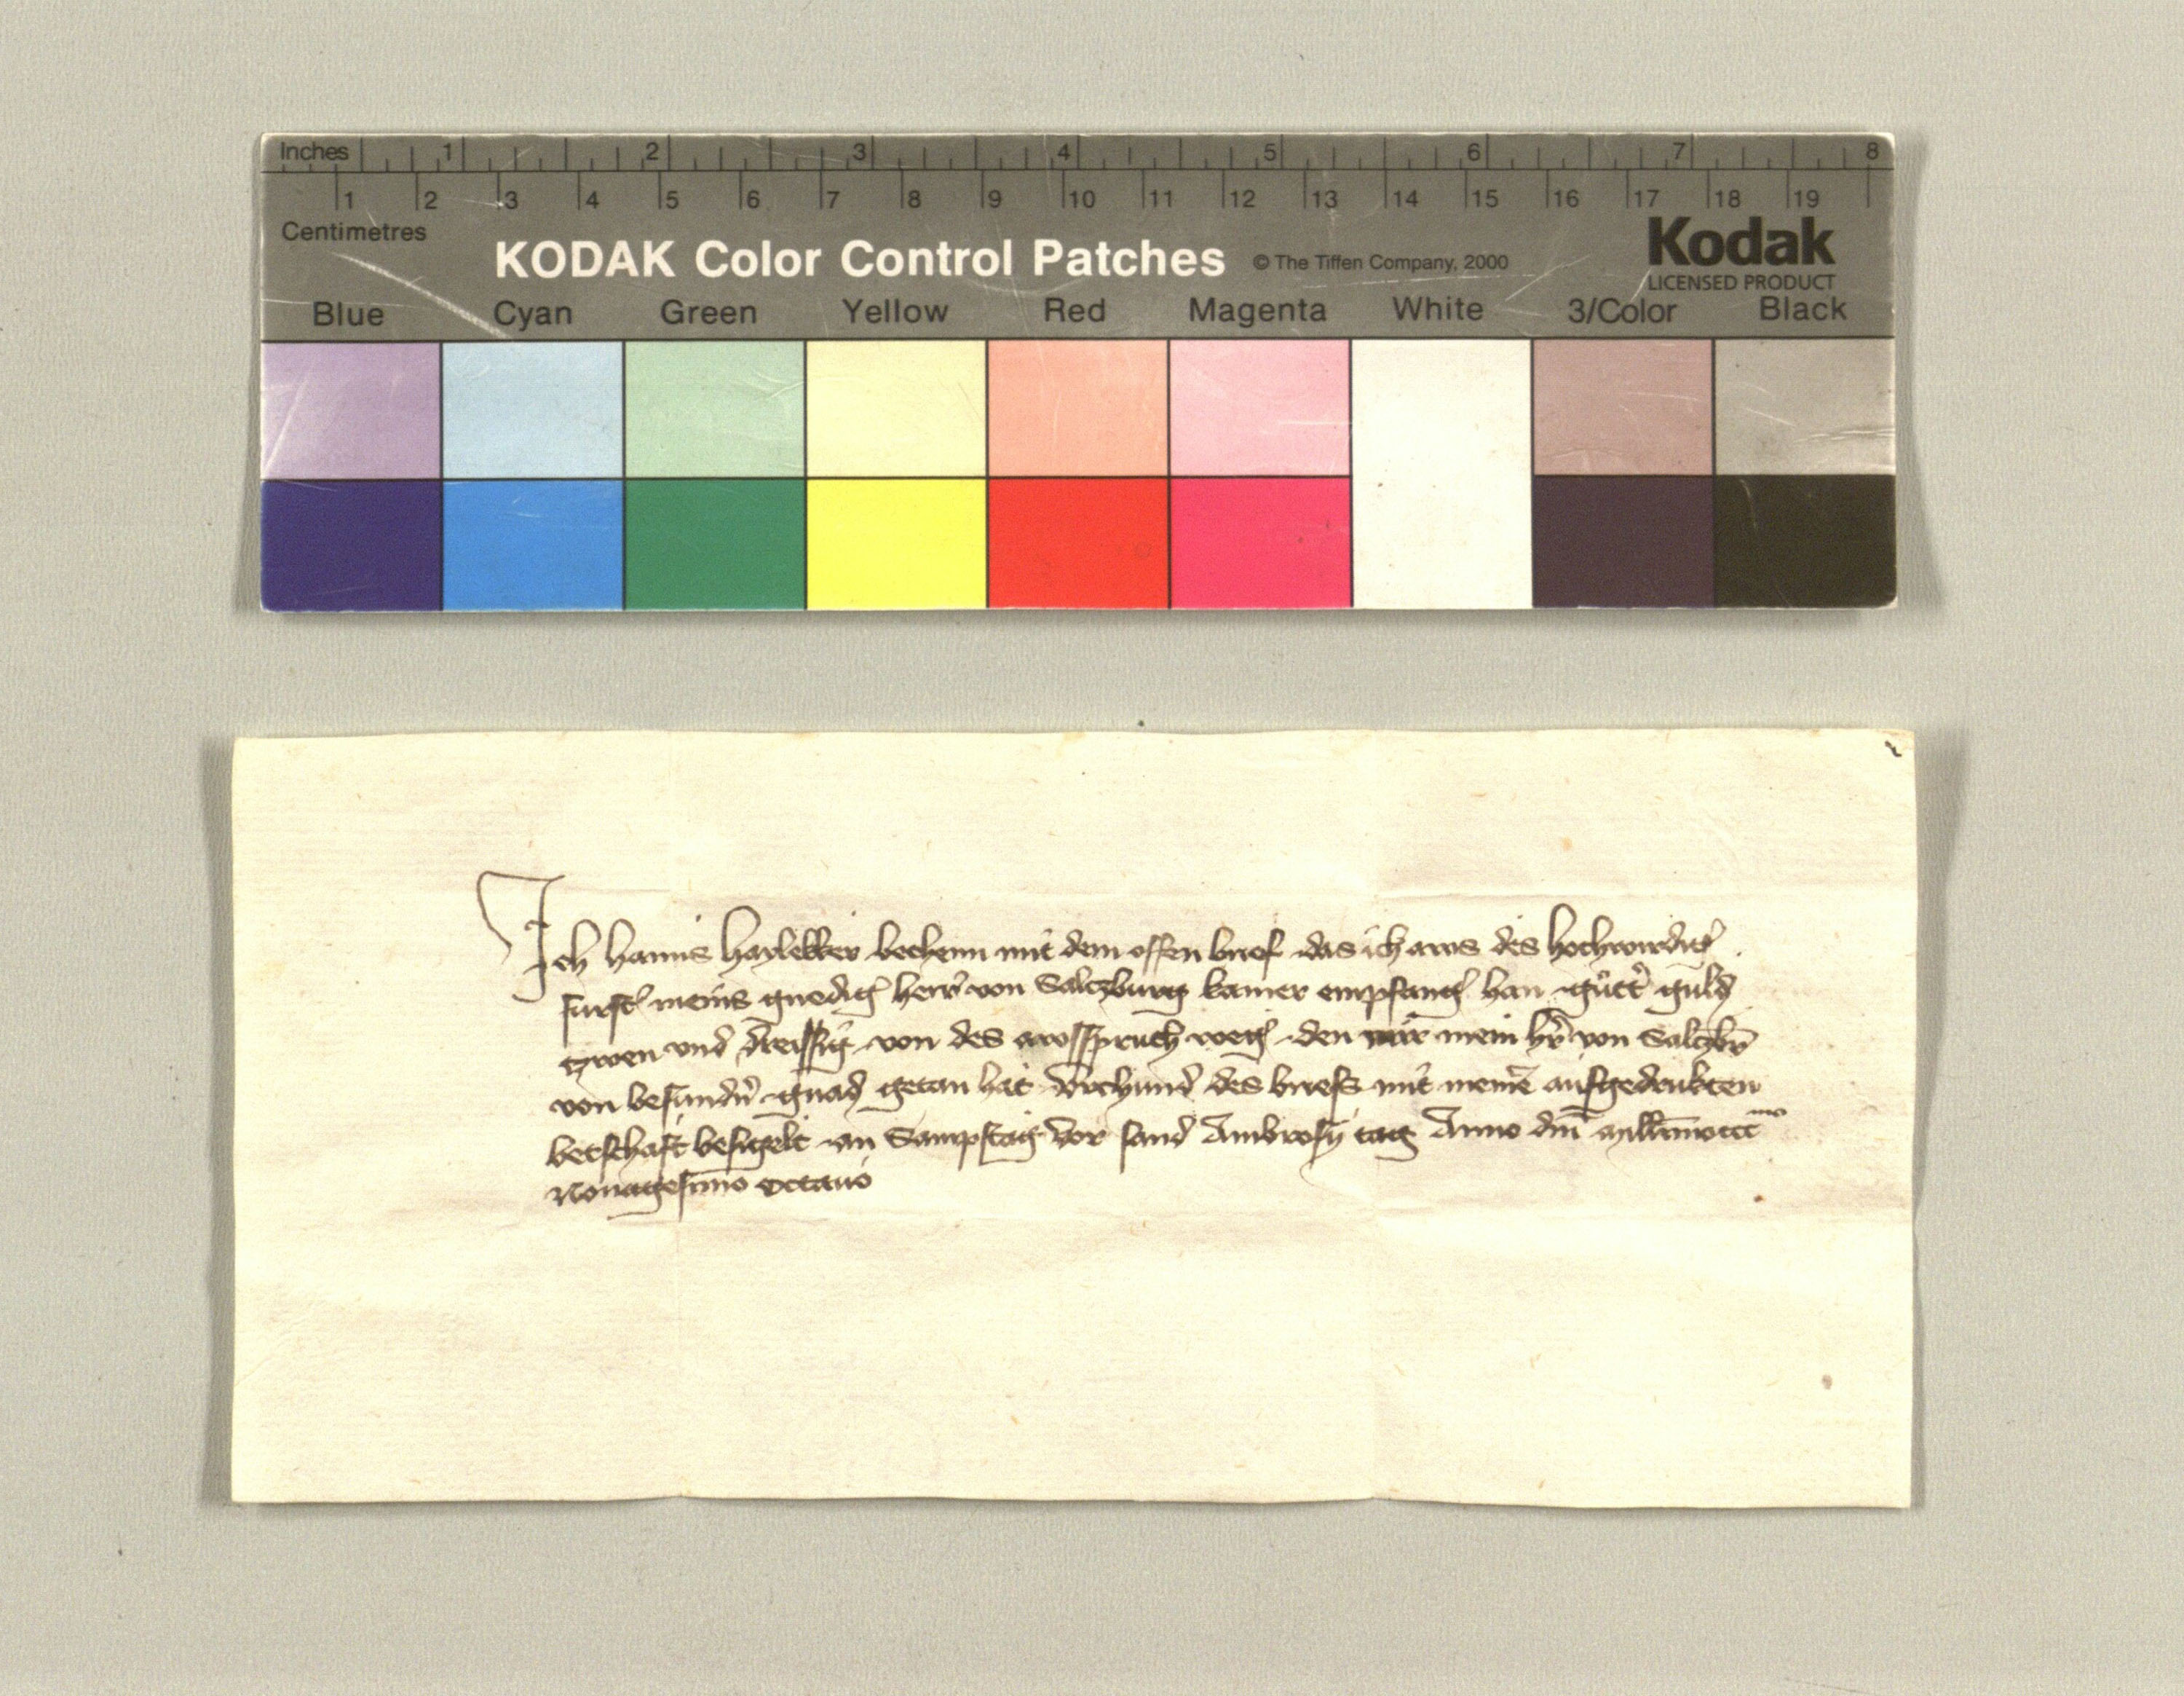 Inches 1 2 3 4 5 6 7 8
1 2 3 4 5 6 7 8 9 10 11 12 13 14 15 16 17 18 19
Centimetres
KODAK Color Control Patches © The Tiffen Company, 2000 Kodak
LICENSED PRODUCT
Blue Cyan Green Yellow Red Magenta White 3/Color Black
Ich Hanns Haylekker bechenn mit dem offen brief das ich aws des hochwirdig
furst meins gnedig herr von Salczburg kamer empfang han gutt guld
zwen vnd dreissig von des awsspruch weg den mir mein hr von Salczbr
von besundn gnad getan hat Vrchund des briefs mit meine aufgedrukten
betschaft besigelt an Sampstag vor sand Ambrosy tag Anno dni millmoccc mo
Nonagesimo octauo